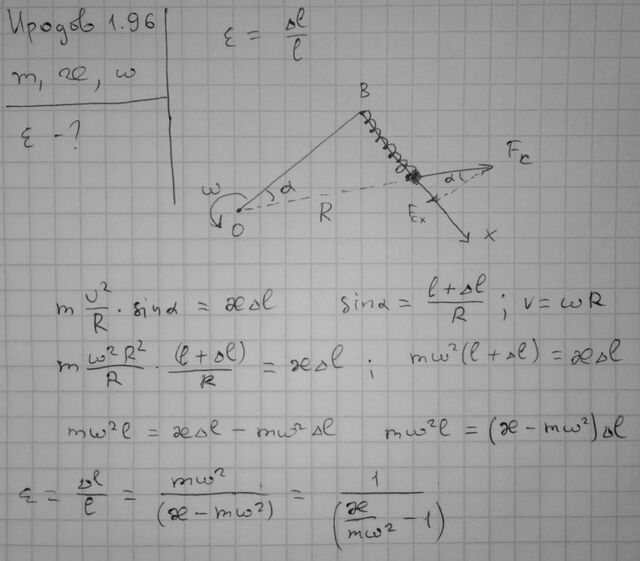 Иродов 1.96
m, æ, ω
ε - ?
ε = Δl/l
B
F_c
ω
α
α
R
F_cx
O
x
m v²/R · sinα = æΔl    sinα = (l + Δl)/R ; v = ωR
m ω²R²/R · (l + Δl)/R = æΔl ; mω²(l + Δl) = æΔl
mω²l = æΔl - mω²Δl    mω²l = (æ - mω²)Δl
ε = Δl/l = mω²/(æ - mω²) = 1/(æ/mω² - 1)